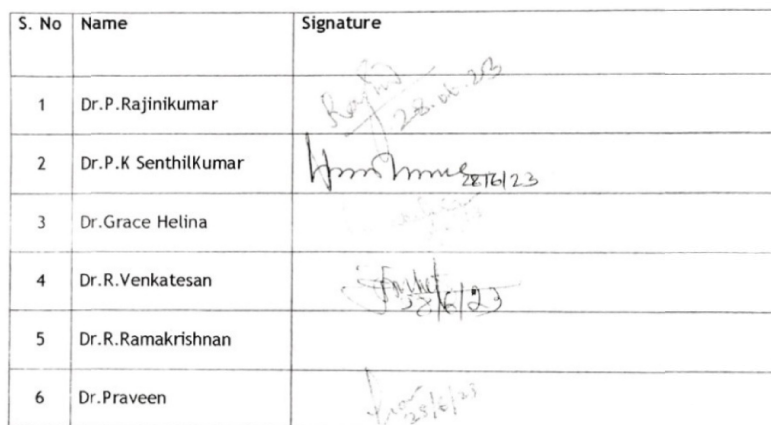 S. No Name Signature
1 Dr.P.Rajinikumar
28.06.23
2 Dr.P.K SenthilKumar
28/6/23
3 Dr.Grace Helina
4 Dr.R.Venkatesan
28/6/23
5 Dr.R.Ramakrishnan
6 Dr.Praveen
28/6/23